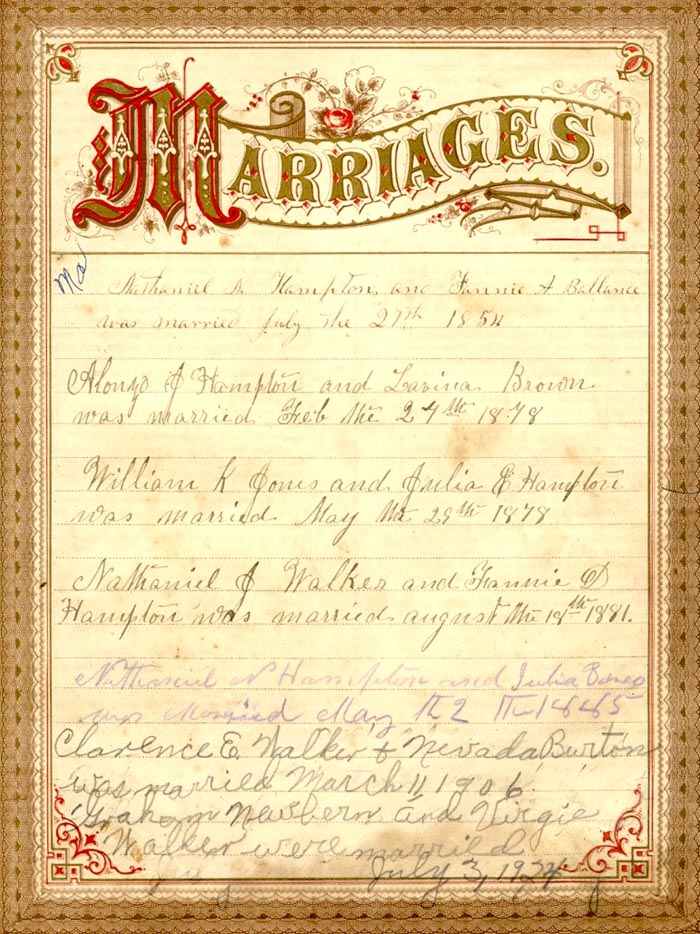 MARRIAGES.
Ma
Nathaniel Hampton and Fannie A Ballance
was married July the 27th 1854
Alonzo J Hampton and Lavina Brown
was married Feb the 27th 1878
William K Jones and Julia E Hampton
was married May the 29th 1878
Nathaniel J Walker and Fannie D
Hampton was married august the 18th 1881.
Nathaniel N Hampton and Julia
was Married May th 2
Clarence E. Walker & Nevada Burton
was married March 11 1906
Graham Newbern and Virgie
Walker were married
July 3, 1924